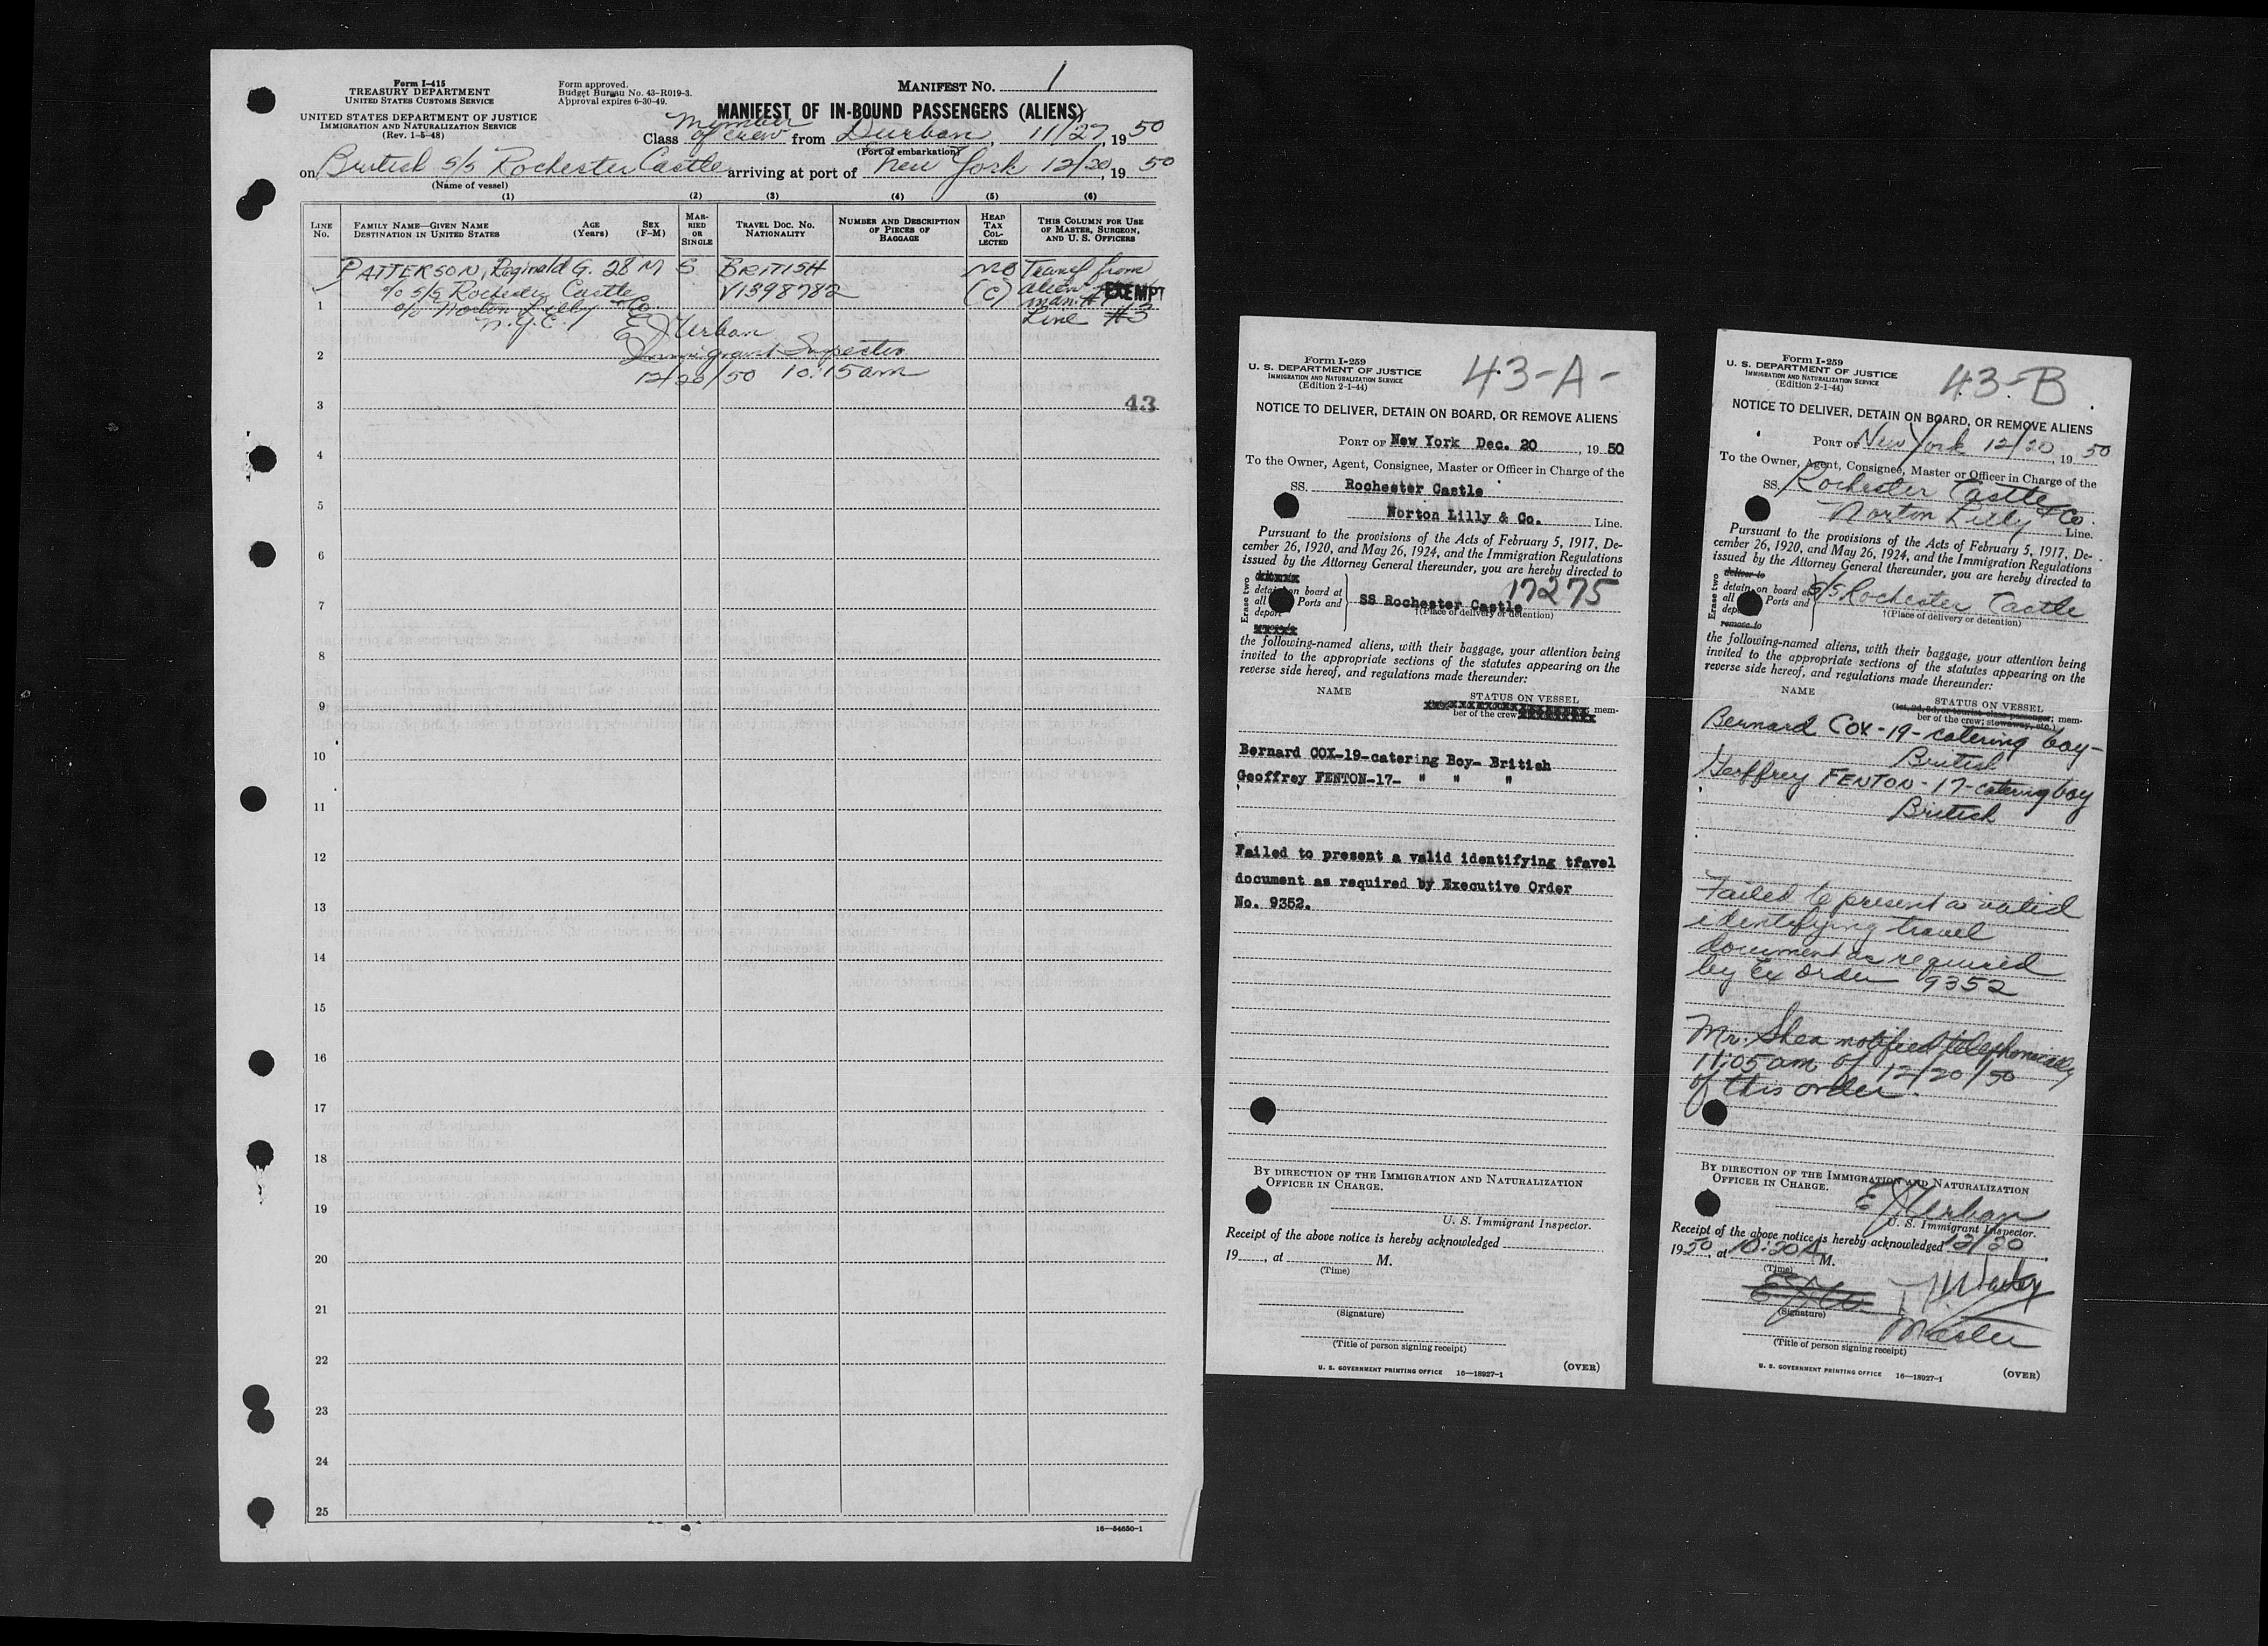 Form I-415
TREASURY DEPARTMENT
UNITED STATES CUSTOMS SERVICE
UNITED STATES DEPARTMENT OF JUSTICE
IMMIGRATION AND NATURALIZATION SERVICE
(Rev. 1-5-48)
Form approved.
Budget Bureau No. 43-R019-3.
Approval expires 6-30-49.
MANIFEST No. 1
MANIFEST OF IN-BOUND PASSENGERS (ALIENS)
Class Member of crew from Durban, 11/27, 1950
(Port of embarkation)
on British S/S Rochester Castle arriving at port of New York 12/20, 1950
(Name of vessel)
(1) (2) (3) (4) (5) (6)
LINE No.
FAMILY NAME—GIVEN NAME AGE (Years) SEX (F-M)
DESTINATION IN UNITED STATES
MARRIED OR SINGLE
TRAVEL DOC. NO. NATIONALITY
NUMBER AND DESCRIPTION OF PIECES OF BAGGAGE
HEAD TAX COLLECTED
THIS COLUMN FOR USE OF MASTER, SURGEON, AND U. S. OFFICERS
PATTERSON, Reginald G. 28 M S BRITISH no Transf from
c/o S/S Rochester Castle V1398782 (C) alien EXEMPT
1 c/o Norton Lilly & Co. man. #1
N.Y.C. Line #3
E J Urban
2 Immigrant Inspector
12/20/50 10:15 am
3 43
4
5
6
7
8
9
10
11
12
13
14
15
16
17
18
19
20
21
22
23
24
25
16—54650-1
Form I-259
U. S. DEPARTMENT OF JUSTICE
IMMIGRATION AND NATURALIZATION SERVICE
(Edition 2-1-44)
43-A-
NOTICE TO DELIVER, DETAIN ON BOARD, OR REMOVE ALIENS
PORT OF New York Dec. 20, 1950
To the Owner, Agent, Consignee, Master or Officer in Charge of the
SS. Rochester Castle
Norton Lilly & Co. Line.
Pursuant to the provisions of the Acts of February 5, 1917, De-
cember 26, 1920, and May 26, 1924, and the Immigration Regulations
issued by the Attorney General thereunder, you are hereby directed to
17275
Erase two
xxxxx
detain on board at
all Ports and
depart
xxxxx
SS Rochester Castle
†(Place of delivery or detention)
the following-named aliens, with their baggage, your attention being
invited to the appropriate sections of the statutes appearing on the
reverse side hereof, and regulations made thereunder:
NAME STATUS ON VESSEL
mem-
ber of the crew
Bernard COX-19-catering Boy- British
Geoffrey FENTON-17- " " "
Failed to present a valid identifying travel
document as required by Executive Order
No. 9352.
BY DIRECTION OF THE IMMIGRATION AND NATURALIZATION
OFFICER IN CHARGE.
U. S. Immigrant Inspector.
Receipt of the above notice is hereby acknowledged
19 , at M.
(Time)
(Signature)
(Title of person signing receipt)
U. S. GOVERNMENT PRINTING OFFICE 16—18927-1 (OVER)
Form I-259
U. S. DEPARTMENT OF JUSTICE
IMMIGRATION AND NATURALIZATION SERVICE
(Edition 2-1-44)
43-B
NOTICE TO DELIVER, DETAIN ON BOARD, OR REMOVE ALIENS
PORT OF New York 12/20, 1950
To the Owner, Agent, Consignee, Master or Officer in Charge of the
SS. Rochester Castle
Norton Lilly & Co. Line.
Pursuant to the provisions of the Acts of February 5, 1917, De-
cember 26, 1920, and May 26, 1924, and the Immigration Regulations
issued by the Attorney General thereunder, you are hereby directed to
Erase two
deliver to
detain on board at
all Ports and
depart
remove to
S/S Rochester Castle
†(Place of delivery or detention)
the following-named aliens, with their baggage, your attention being
invited to the appropriate sections of the statutes appearing on the
reverse side hereof, and regulations made thereunder:
NAME STATUS ON VESSEL
(1st, 2d, 3d, or tourist class passenger; mem-
ber of the crew; stowaway, etc.)
Bernard COX -19- catering boy-
British
Geoffrey FENTON - 17- catering boy
British
Failed to present a valid
identifying travel
document as required
by Ex Order 9352
Mr. Shea notified telephonically
11:05 am of 12/20/50
of this order.
BY DIRECTION OF THE IMMIGRATION AND NATURALIZATION
OFFICER IN CHARGE.
E J Urban
U. S. Immigrant Inspector.
Receipt of the above notice is hereby acknowledged 12/20
1950, at 10:20 A M.
(Time)
(Signature)
Master
(Title of person signing receipt)
U. S. GOVERNMENT PRINTING OFFICE 16—18927-1 (OVER)